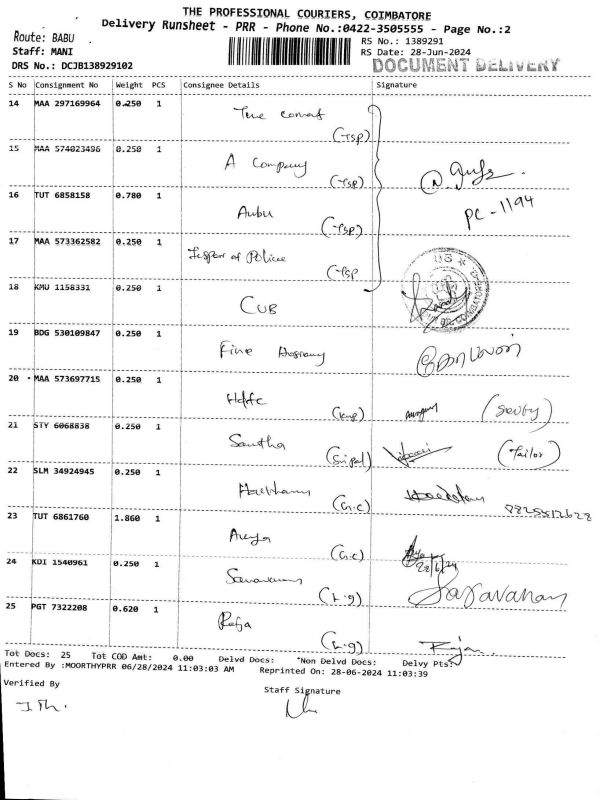 THE PROFESSIONAL COURIERS, COIMBATORE
Delivery Runsheet - PRR - Phone No.:0422-3505555 - Page No.:2
Route: BABU
RS No.: 1389291
Staff: MANI
RS Date: 28-Jun-2024
DRS No.: DCJB138929102
DOCUMENT DELIVERY
S No Consignment No Weight PCS Consignee Details Signature
14 MAA 297169964 0.250 1
(TSP)
15 MAA 574023496 0.250 1 A Company
(TSP)
16 TUT 6858158 0.780 1 Anbu
(TSP)
PC-1194
17 MAA 573362582 0.250 1 of Police
(TSP
18 KMU 1158331 0.250 1 CUB
19 BDG 530109847 0.250 1 Five
20 MAA 573697715 0.250 1 Hdfc
21 STY 6068838 0.250 1 Santha
(Tailor)
22 SLM 34924945 0.250 1
(G.C)
23 TUT 6861760 1.860 1
(G.C)
28/6/24
24 KDI 1540961 0.250 1
Saravanan
25 PGT 7322208 0.620 1 Raja
Tot Docs: 25 Tot COD Amt: 0.00 Delvd Docs: Non Delvd Docs: Delvy Pts:
Entered By :MOORTHYPRR 06/28/2024 11:03:03 AM Reprinted On: 28-06-2024 11:03:39
Verified By
Staff Signature